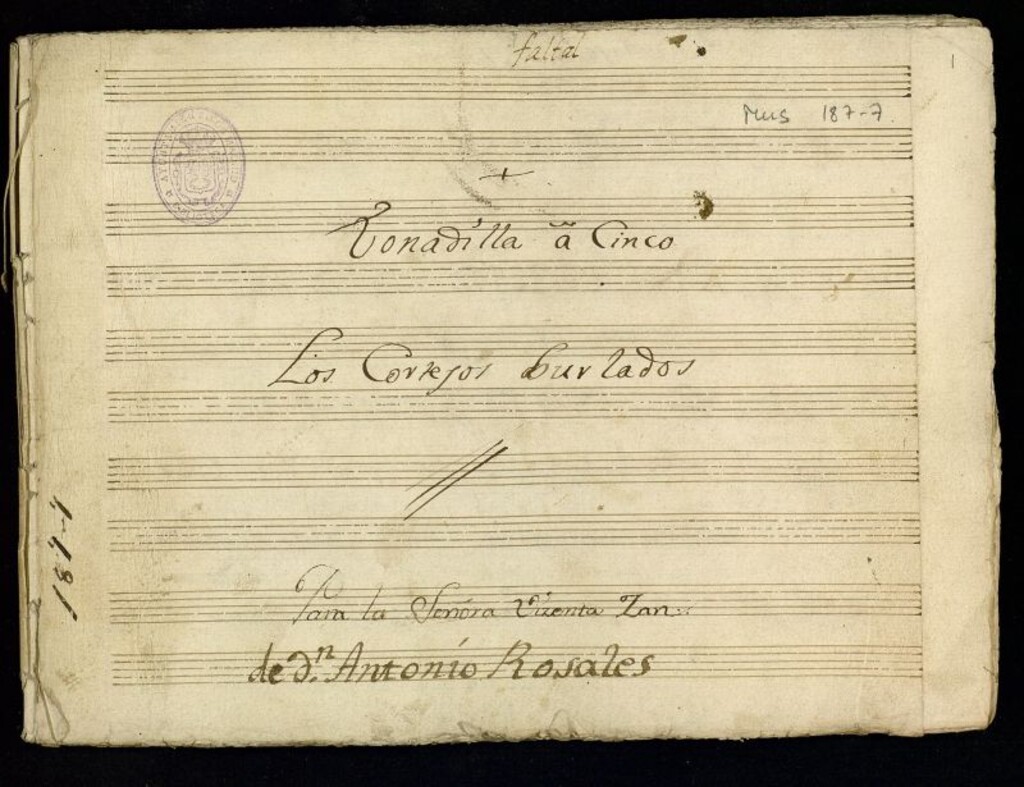 1
Mus 187-7
+
Tonadilla â Cinco
Los Cortejos burlados
Para la Señora Vizenta Zan
de Dn. Antonio Rosales